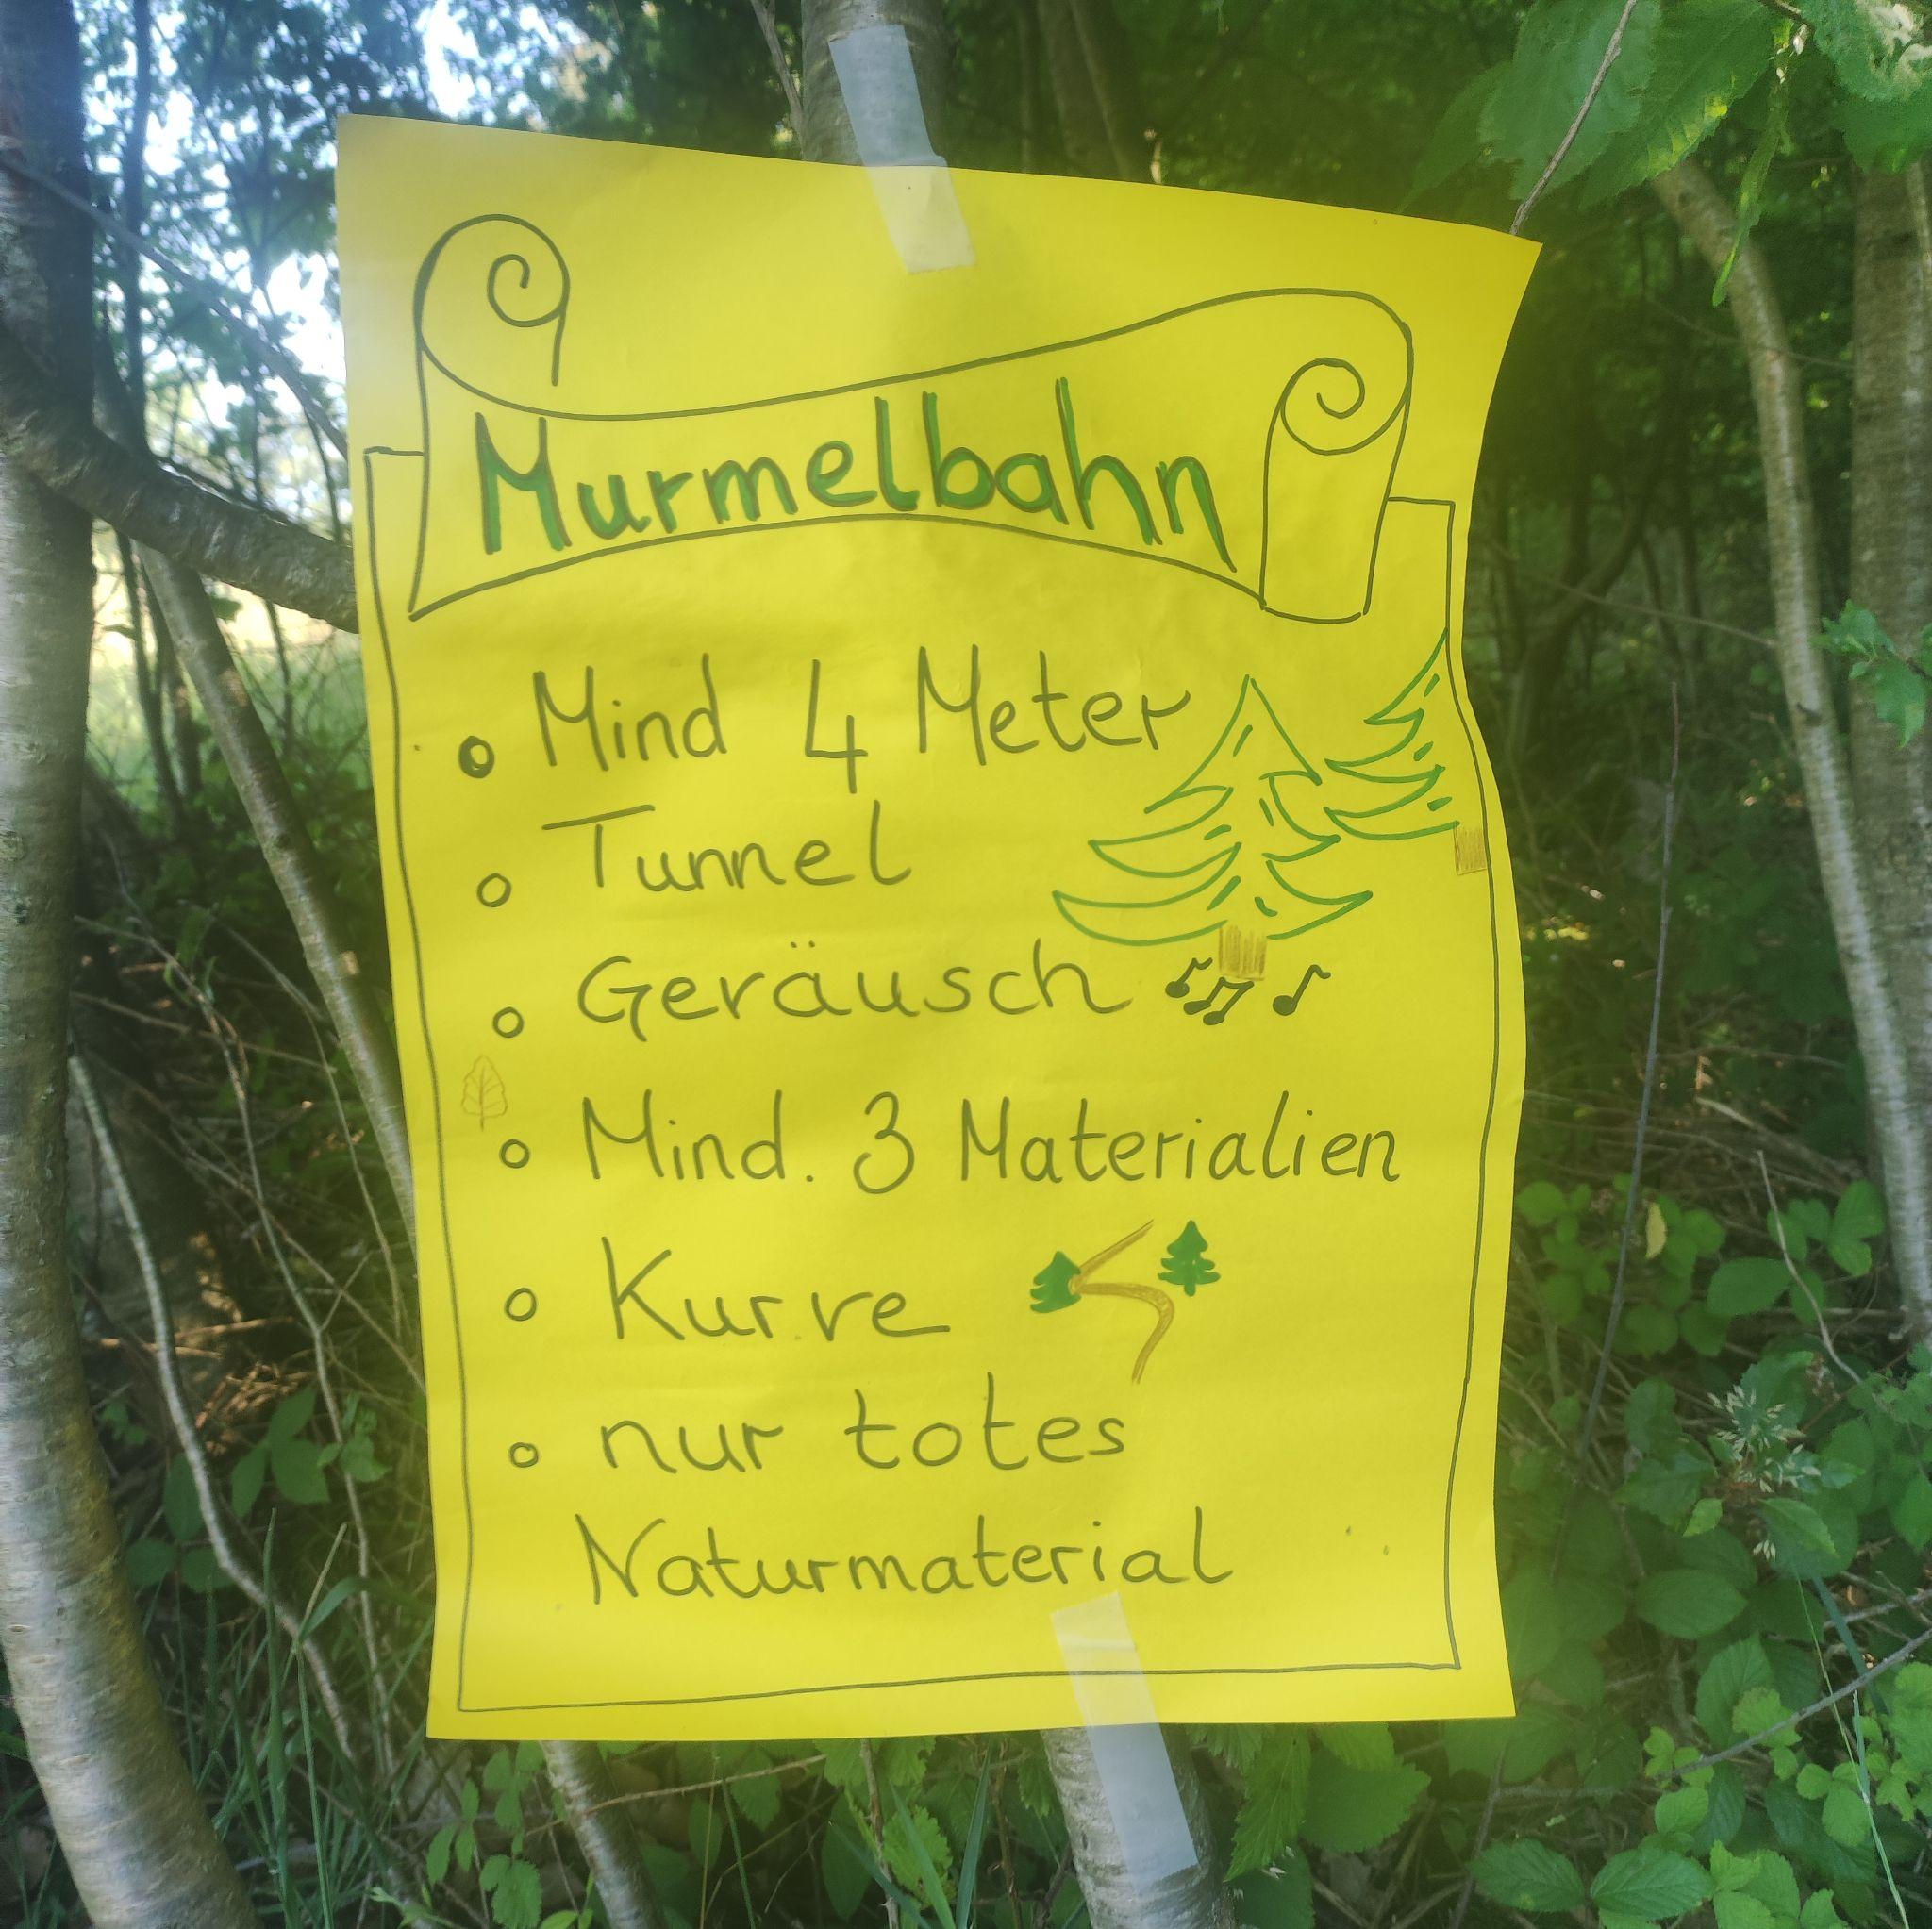 Murmelbahn
Mind 4 Meter
Tunnel
Geräusch
Mind. 3 Materialien
Kurve
nur totes
Naturmaterial